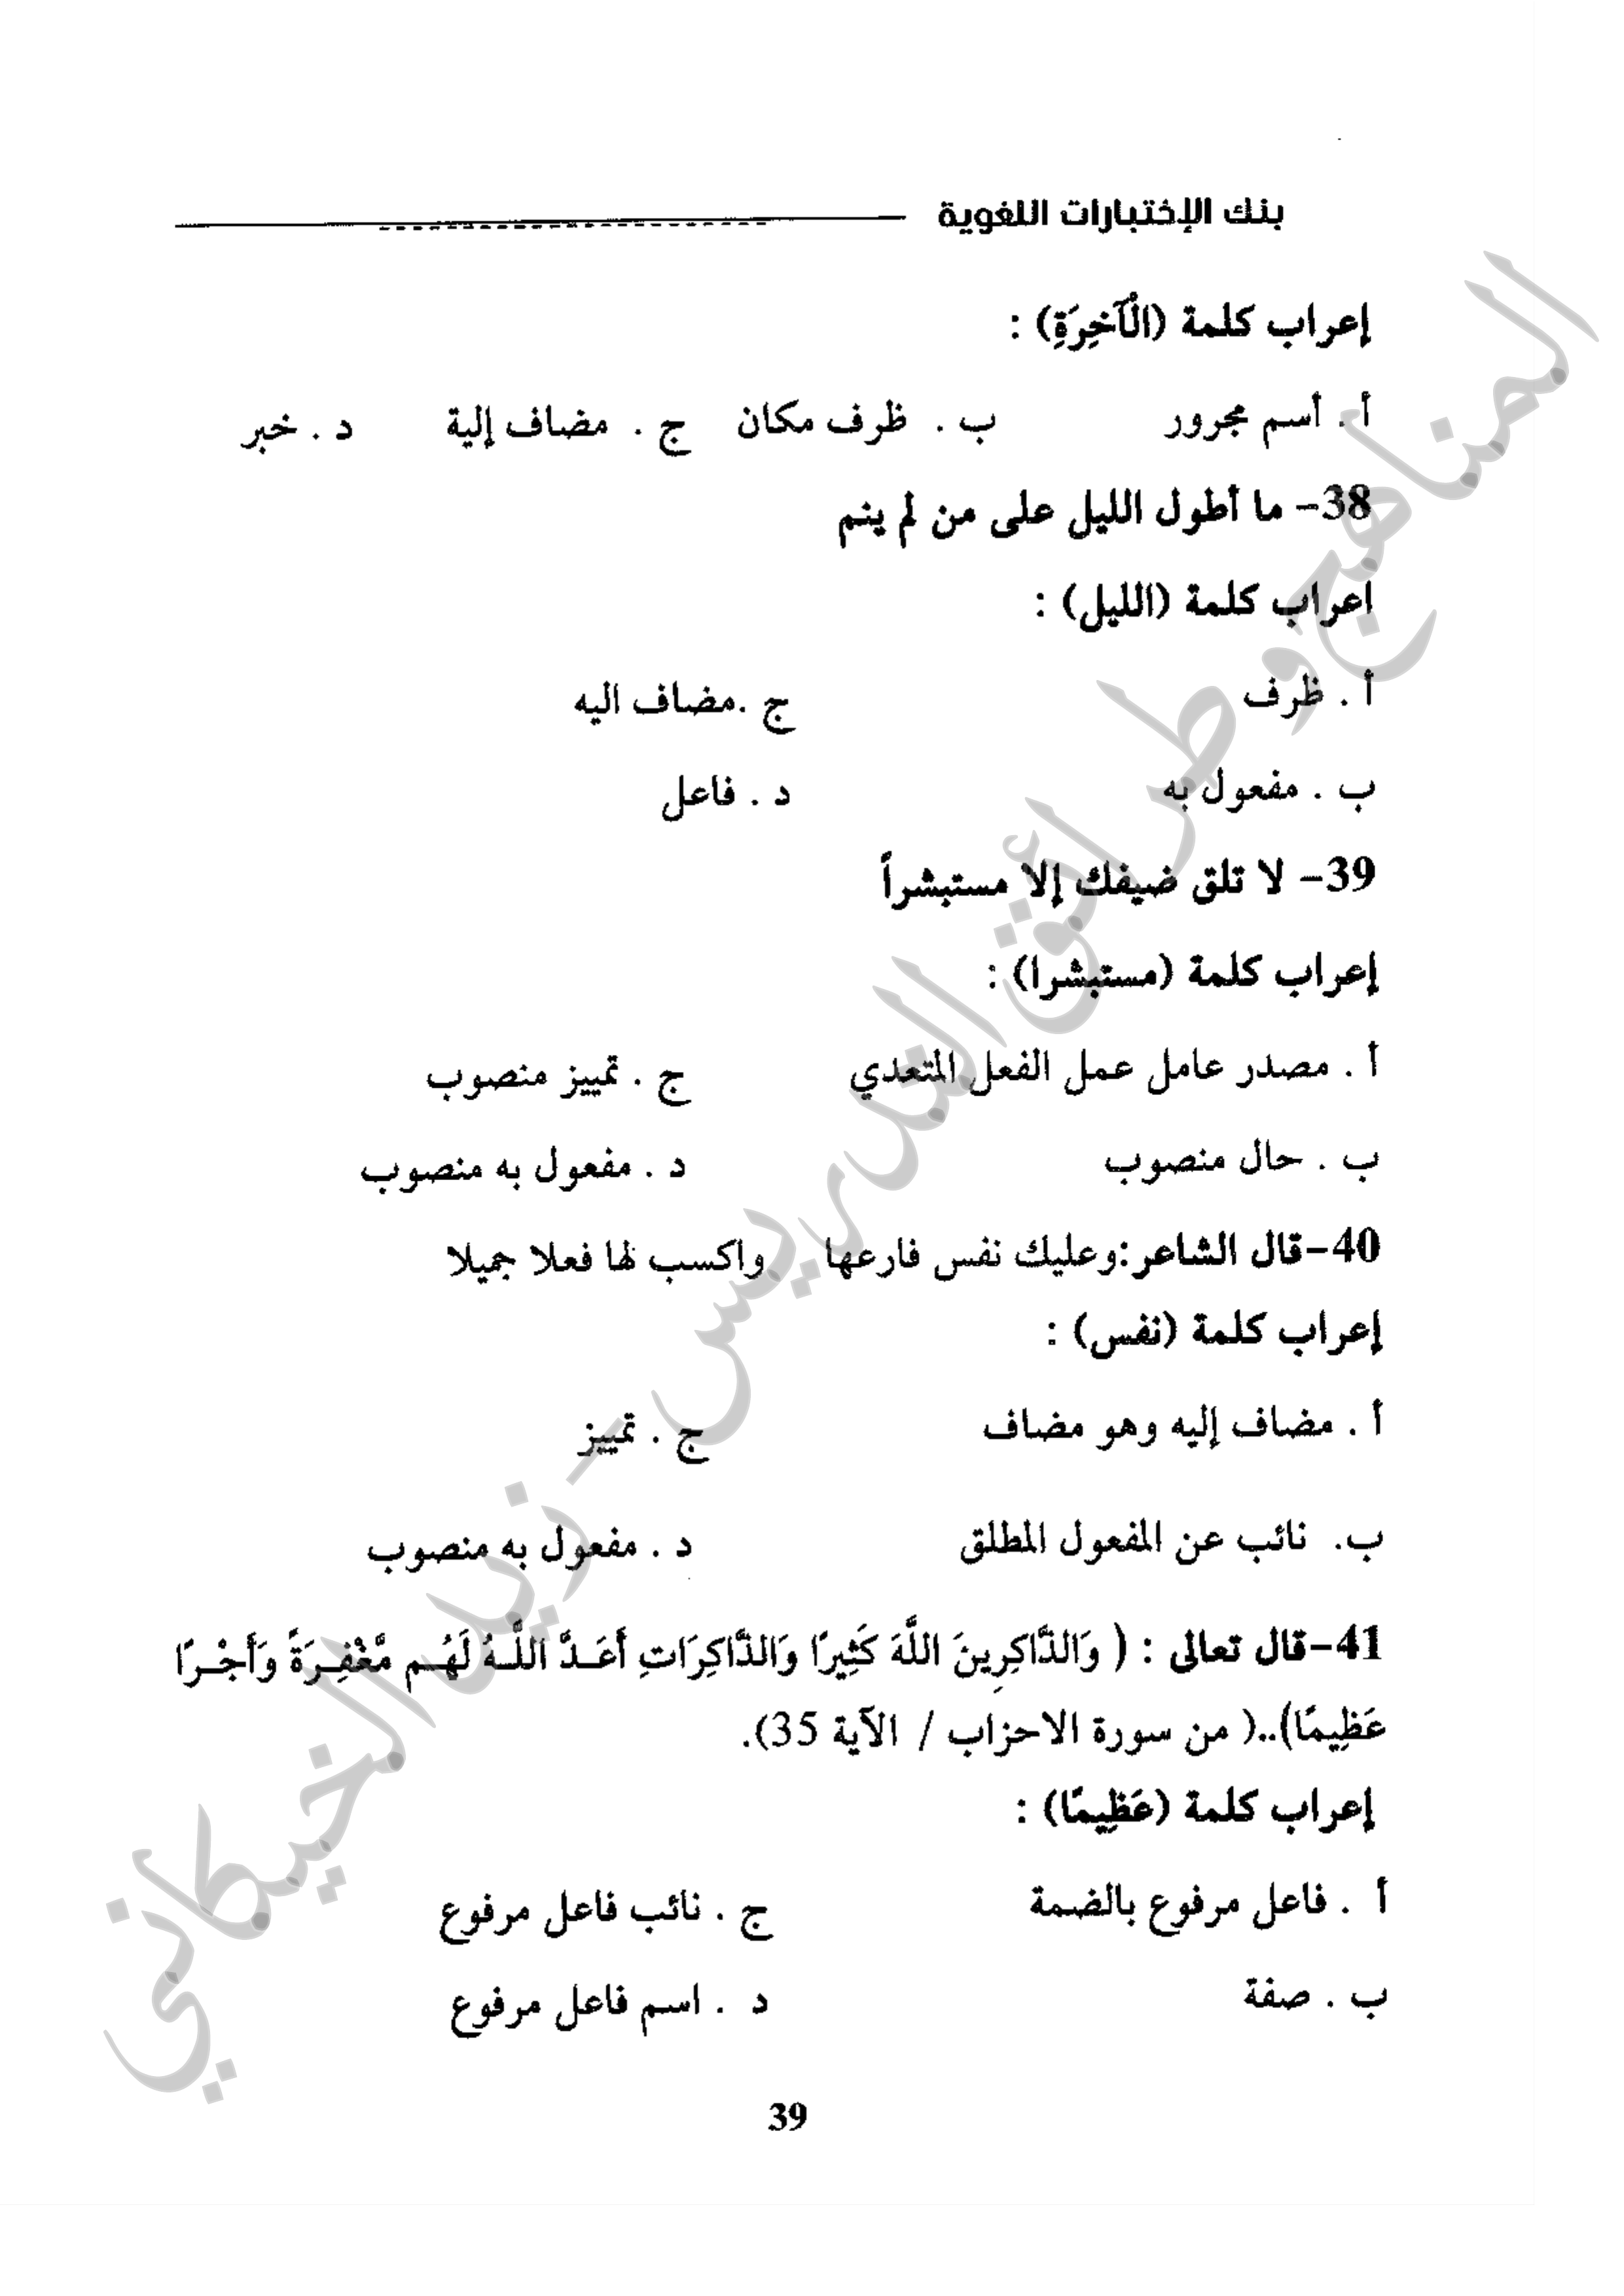 بنك الإختبارات اللغوية
إعراب كلمة (الْآخِرَةِ) :
أ . أسم مجرور ب . ظرف مكان ج . مضاف إلية د . خبر
38- ما أطول الليل على من لم ينم
اعراب كلمة (الليل) :
أ . ظرف ج .مضاف اليه
ب . مفعول به د . فاعل
39- لا تلق ضيفك إلا مستبشراً
إعراب كلمة (مستبشرا) :
أ . مصدر عامل عمل الفعل المتعدي ج . تمييز منصوب
ب . حال منصوب د . مفعول به منصوب
40-قال الشاعر:وعليك نفس فارعها واكسب لها فعلا جميلا
إعراب كلمة (نفس) :
أ . مضاف إليه وهو مضاف ج . تمييز
ب. نائب عن المفعول المطلق د . مفعول به منصوب
41-قال تعالى : ( وَالذَّاكِرِينَ اللَّهَ كَثِيرًا وَالذَّاكِرَاتِ أَعَـدَّ اللَّـهُ لَهُـم مَّغْفِـرَةً وَأَجْـرًا
عَظِيمًا)..( من سورة الاحزاب / الآية 35).
إعراب كلمة (عَظِيمًا) :
أ . فاعل مرفوع بالضمة ج . نائب فاعل مرفوع
ب . صفة د . اسم فاعل مرفوع
39
المناهج وطرائق التدريس - زيد الخيكاني